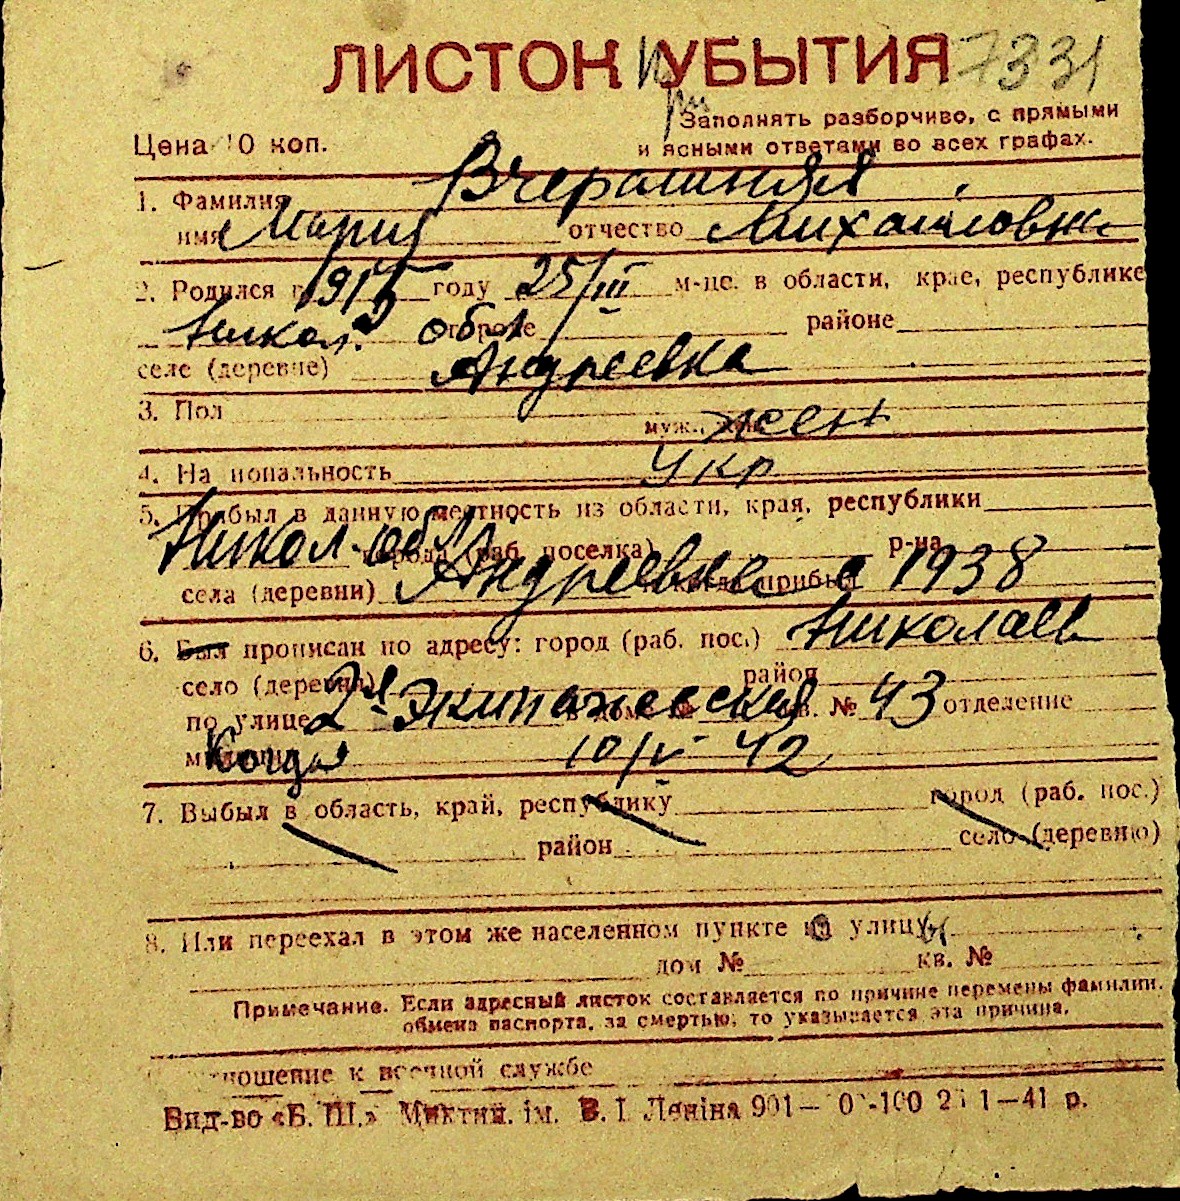 ЛИСТОК УБЫТИЯ 7331
Заполнять разборчиво, с прямыми
Цена 10 коп. и ясными ответами во всех графах.
1. Фамилия Вчерашняя
имя Мария отчество Михайловна
2. Родился в году 25/III м-це. в области, крае, республике
Никол. обл городе районе
селе (деревне) Андреевка
3. Пол муж., жен. жен
4. Национальность Укр
5. Прибыл в данную местность из области, края, республики
Никол. обл города (раб. поселка) р-на
села (деревни) Андреевка и когда прибыл с 1938
6. Был прописан по адресу: город (раб. пос.) Николаев
село (деревня) район
по улице 2я Экипажевская в дом № кв. № 43 отделение
милиции Когда 10/V 42
7. Выбыл в область, край, республику город (раб. пос.)
район село (деревню)
8. Или переехал в этом же населенном пункте на улицу
дом № кв. №
Примечание. Если адресный листок составляется по причине перемены фамилии,
обмена паспорта, за смертью, то указывается эта причина.
Отношение к военной службе
Вид-во «Б. Ш.» Миктип. ім. В. І. Леніна 901— 1—41 р.